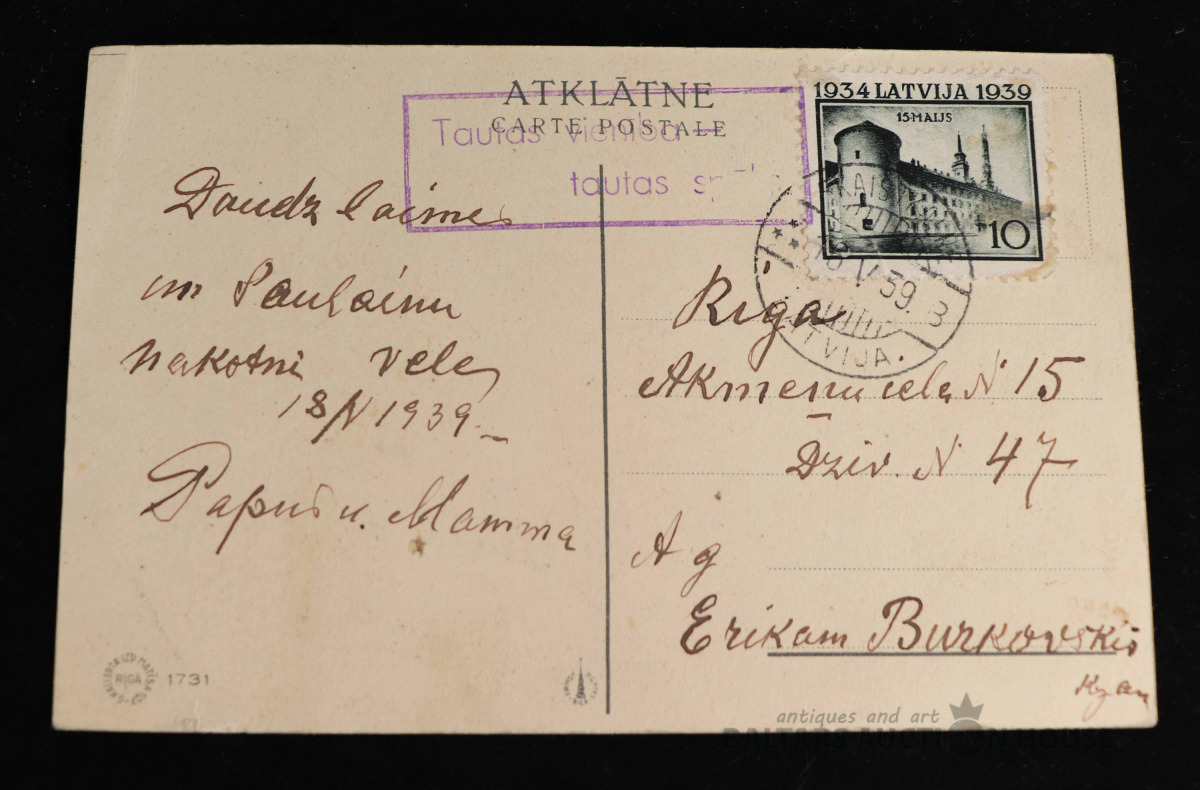 ATKLĀTNE
CARTE POSTALE
Tautas vienība —
tautas
1934 LATVIJA 1939
15·MAIJS
10
V 39. B
LATVIJA
Daudz laimes
un Saulainu
Nakotni vele
18/V 1939
Papus u. Mamma
Riga
Akmeņu iela N 15
Dziv. N 47
A g
Erikam Burkovskis
RIGA
1731
antiques and art
BALTARS AUCTION HOUSE